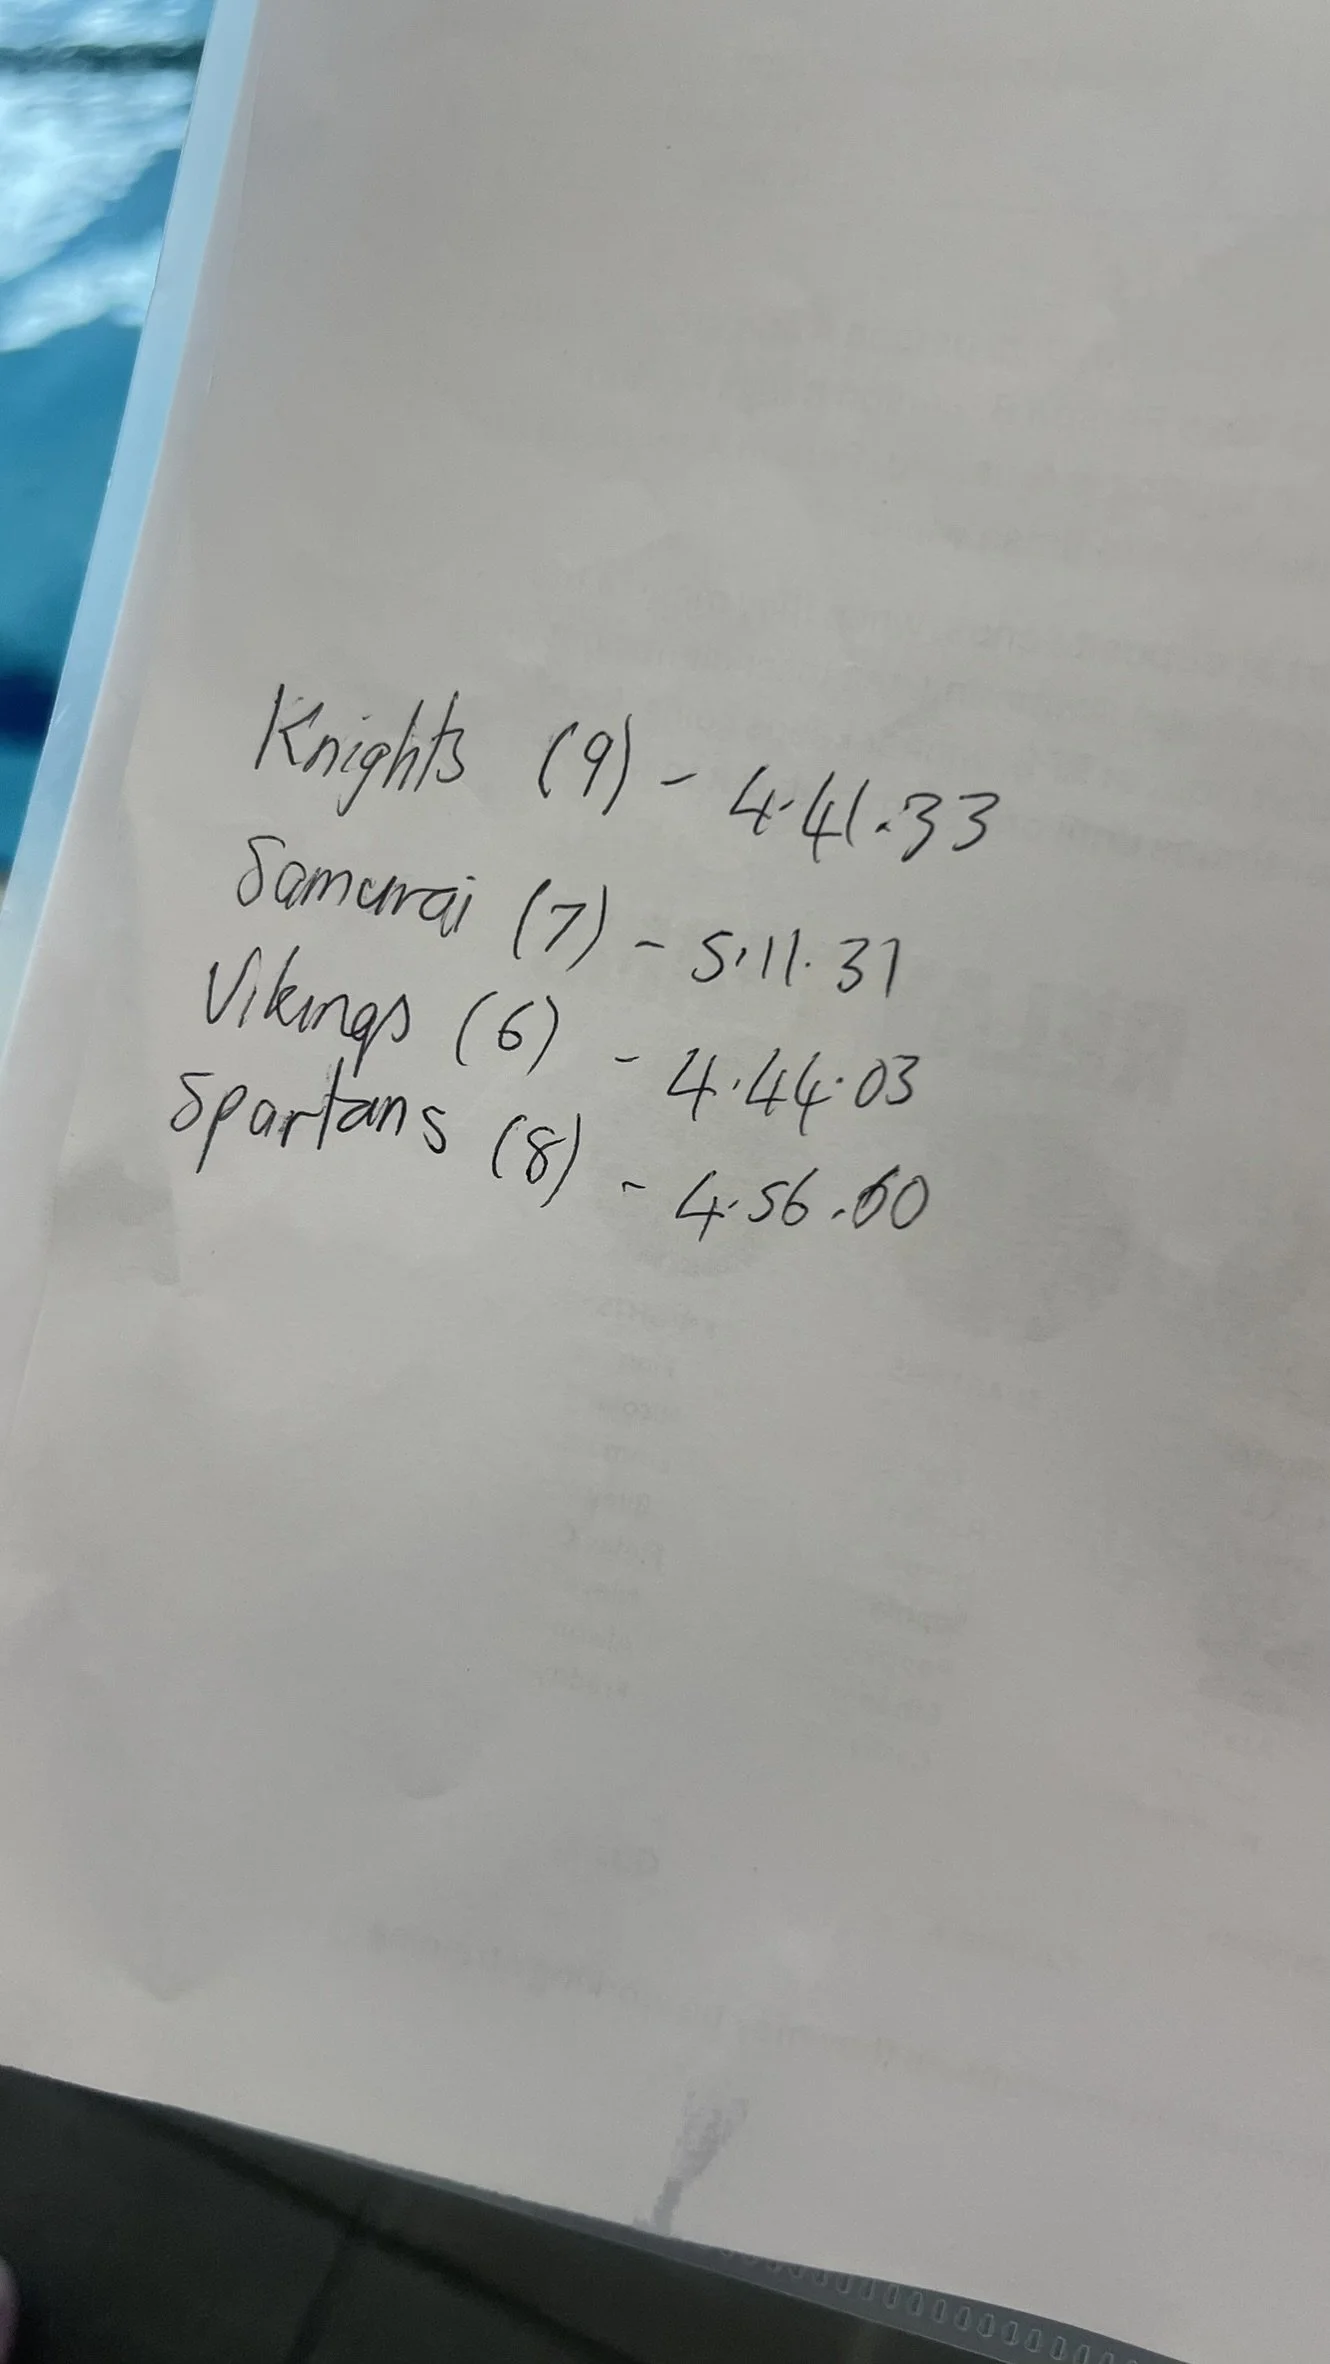 Knights (9) - 4.41.33
Samurai (7) - 5.11.31
Vikings (6) - 4.44.03
Spartans (8) - 4.56.60